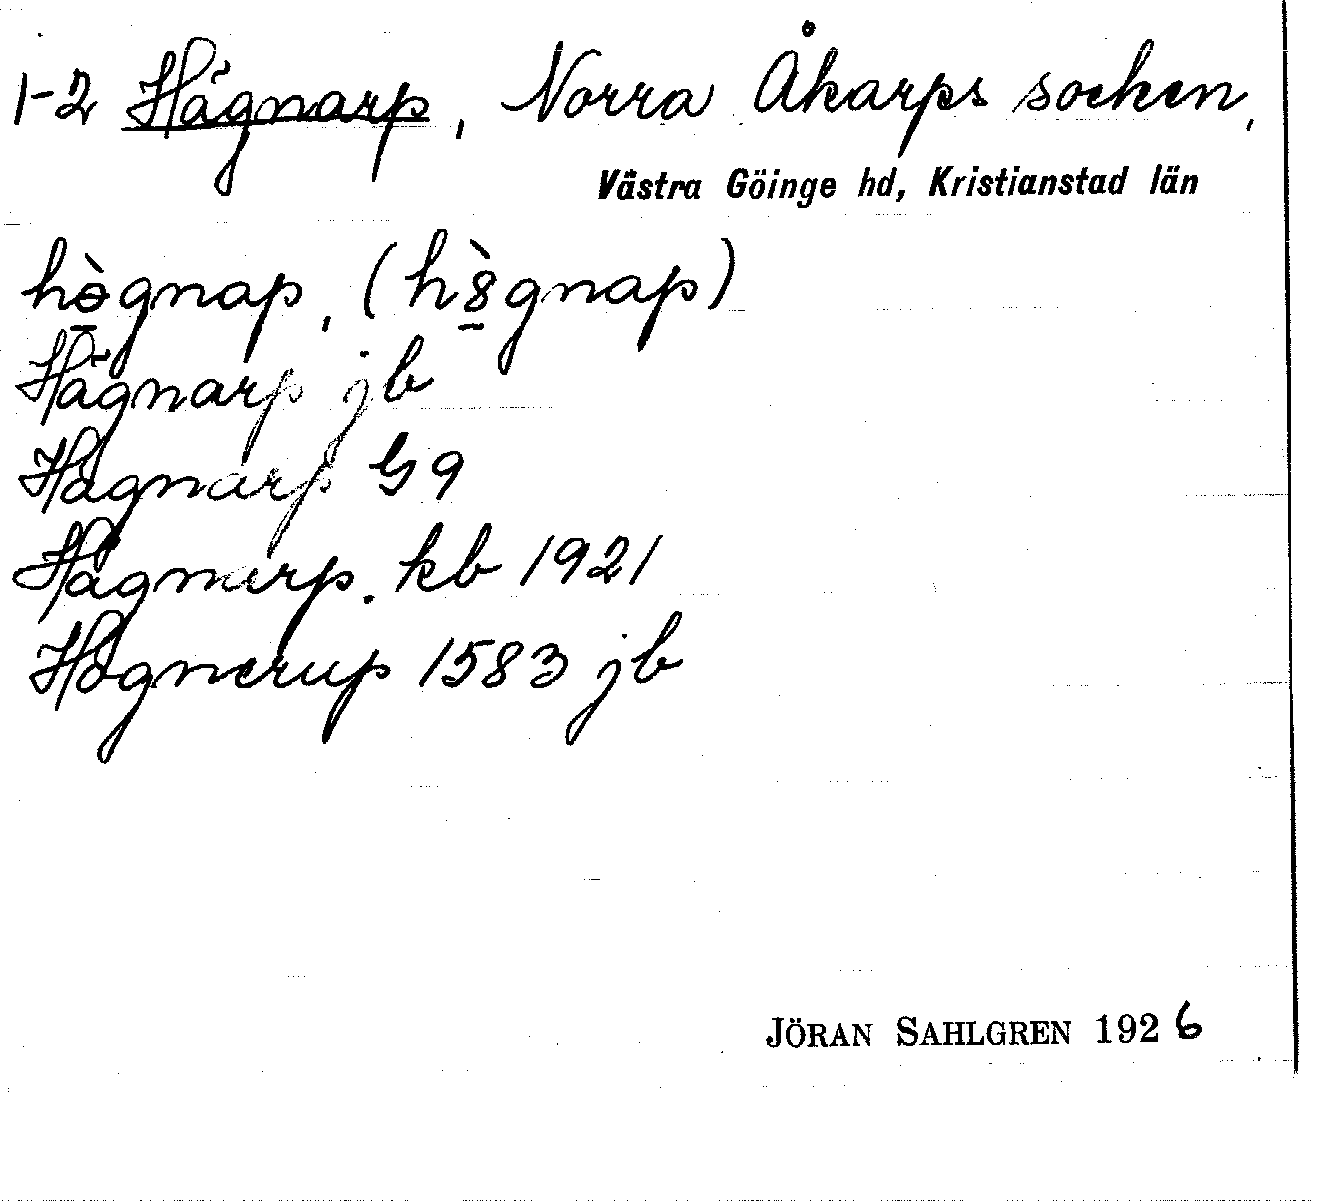 1-2 Hägnarp, Norra Åkarps socken,
Västra Göinge hd, Kristianstad län
hògnap, (hògnap)
Hägnarp jb
Hägnarp G9
Hägnarp. kb 1921
Hognerup 1583 jb
JÖRAN SAHLGREN 1926